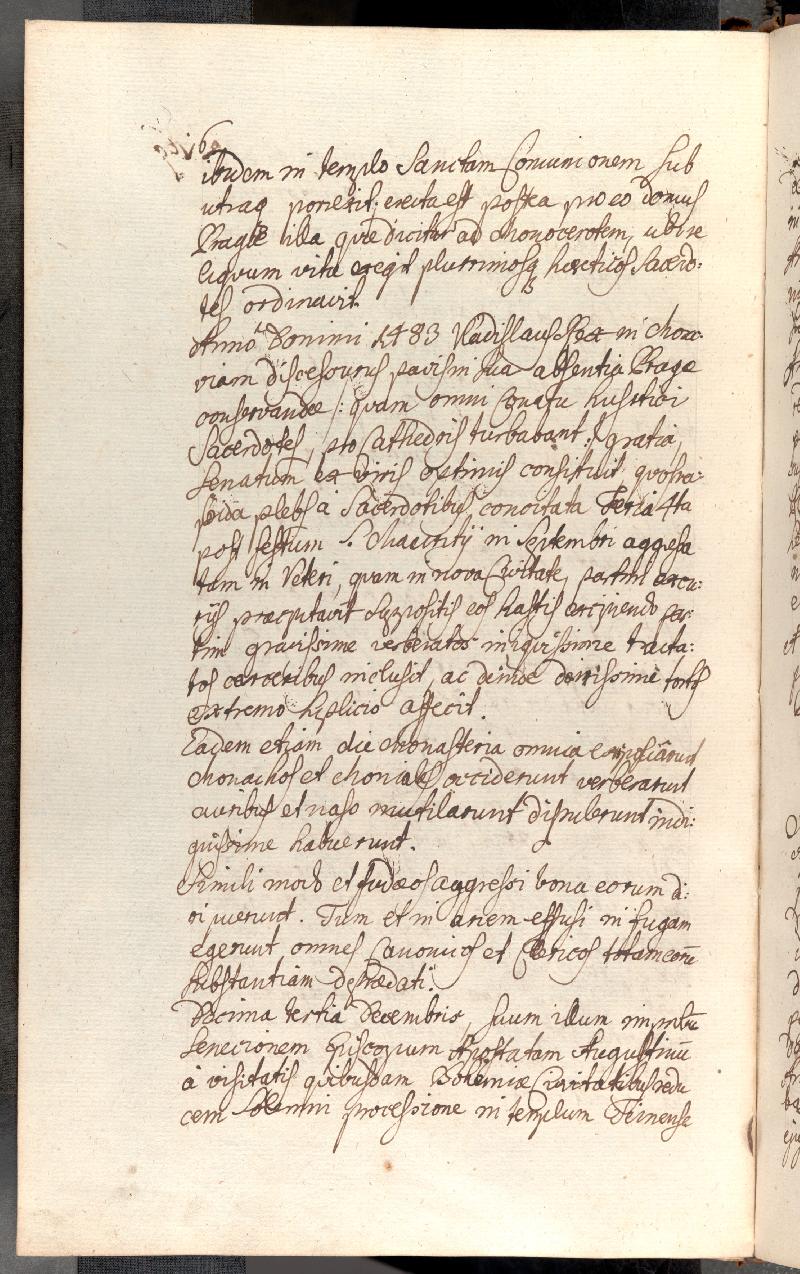 ibidem in templo Sanctam Comunionem sub
utraq porrexit: erecta est postea pro eo domus
Pragae illa quae dicitur ad Monocerotem, ubi re
liquum vitae egit plurimosq haeticos Sacerdo:
tes ordinavit
Anno Domini 1483 Vladislaus Rex in Mora:
viam discesourus pacis in sua absentia Pragae
conservandae /: quam omni Conatu hussitici
Sacerdotes, pro Cathedris turbabant :/ gratia,
Senatum ex viris optimis constituit quos ra:
bida plebs à Sacerdotibus concitata Feria 4ta
post festum S. Mauritij in Septembri aggressa
tam in Veteri, quam in nova Civitate, partim ex cu:
rijs praecipitavit suppositis eos hastis excipiendo par:
tim gravissime verberatos iniquissime tracta:
tos carceribus inclusit, ac deinde dirissime tortos
extremo suplicio affecit.
Eadem etiam die Monasteria omnia expiliârunt
Monachos et Moniales occiderunt verberarunt
auribus et naso mutilarunt dispulerunt indi:
gnissime habuerunt.
Simili modo et Judaeos aggressi bona eorum di:
ripuerunt. Tum et in arcem effusi in fugam
egerunt omnes Canonicos et Clericos totam eorũ
substantiam depraedati.
Decima tertia Decembris, suum illum impurũ
Senecionem Episcopum Apostatam Augustinũ
à visitatis quibusdam Bohemiae Civitatibus redu
cem Solemni processione in templum Teinense